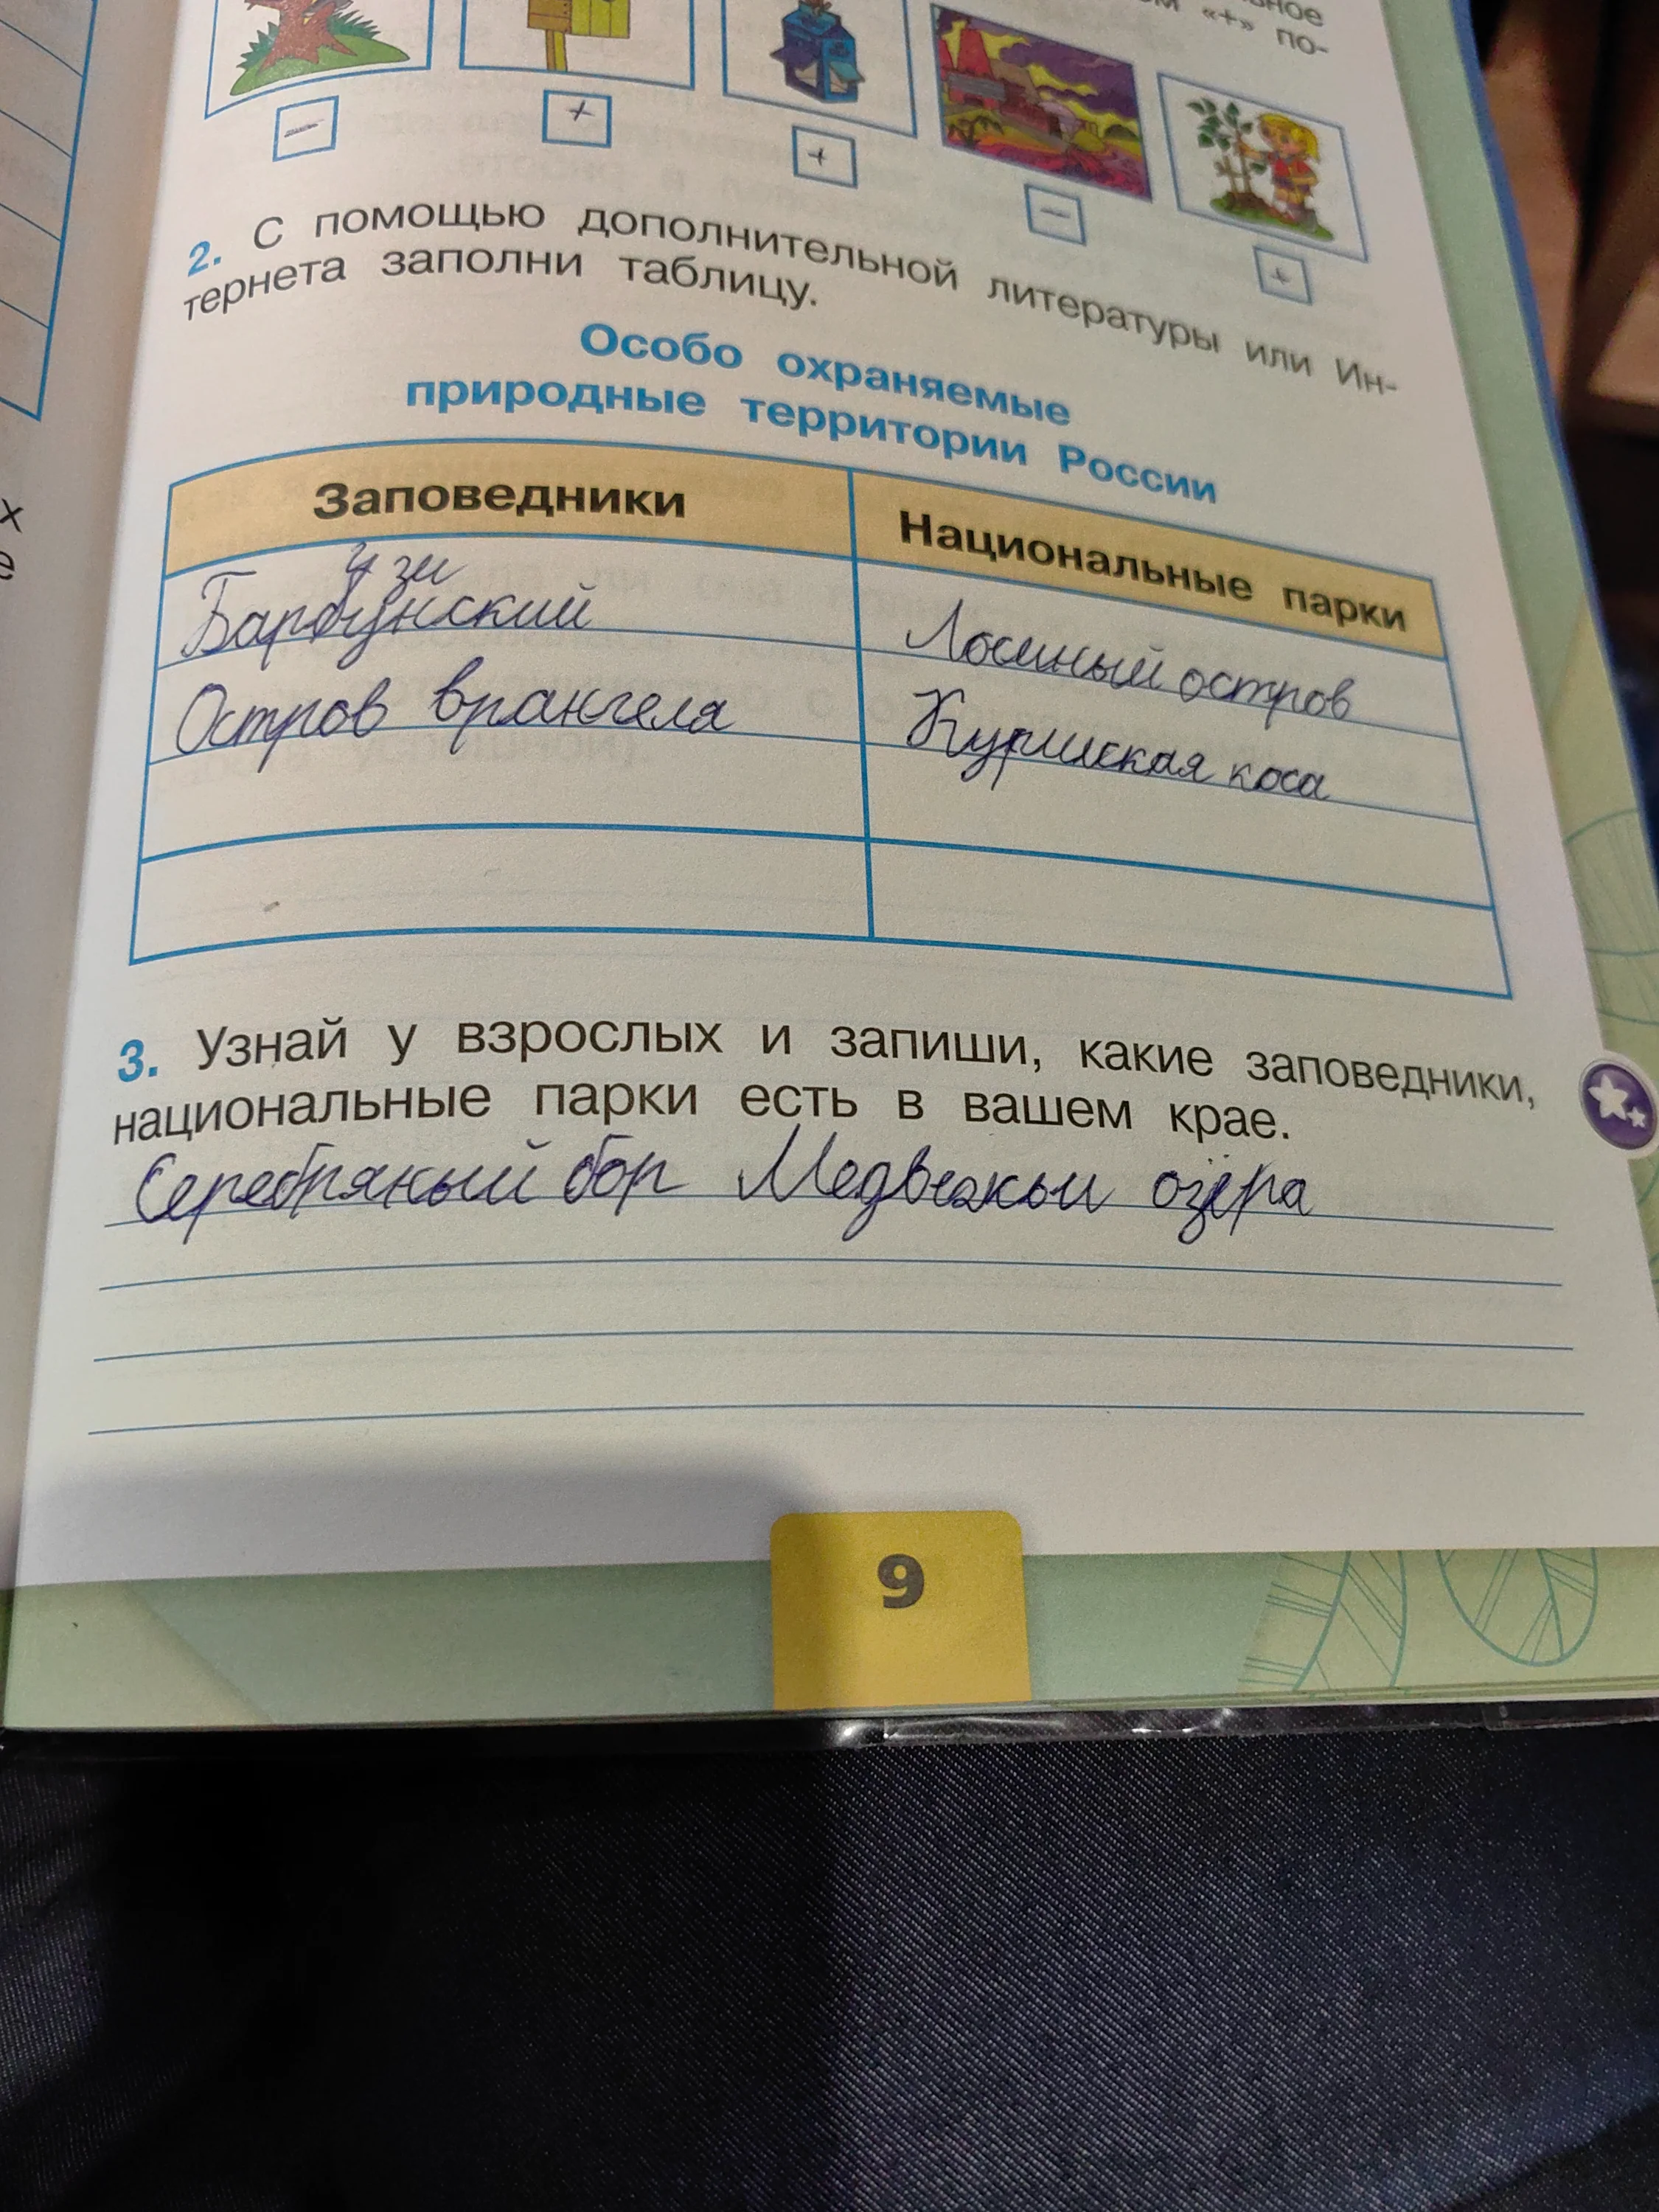 «+» по-
− + + − +
2. С помощью дополнительной литературы или Ин-
тернета заполни таблицу.
Особо охраняемые
природные территории России
Заповедники Национальные парки
Лосиный остров
Остров врангеля Куршская коса
3. Узнай у взрослых и запиши, какие заповедники,
национальные парки есть в вашем крае.
Серебряный бор Медвежьи озёра
9
х
е